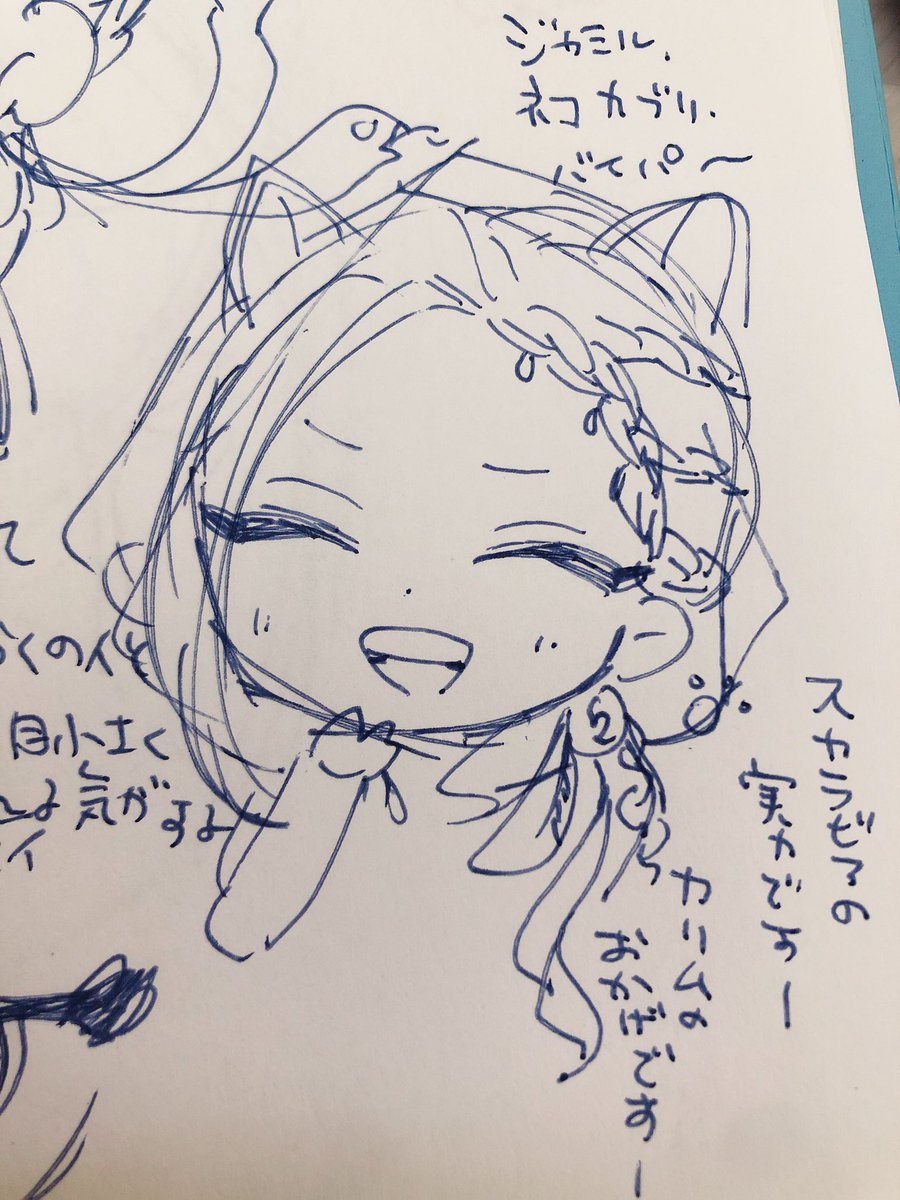 ジャミル.
ネコカブリ.
バイパ〜
スカラビアの
実力ですー
カリムの
おかげですー
て
くのイ
目小エく
気が
するよ
イ